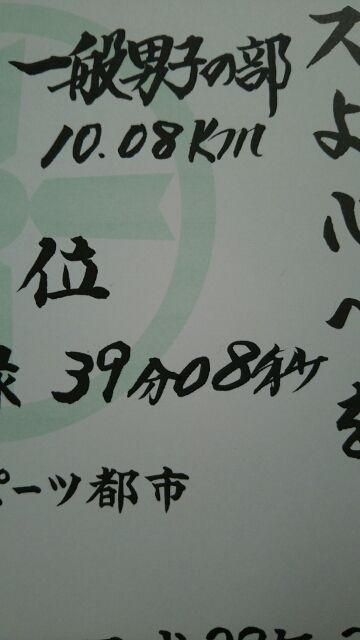 一般男子の部
10.08Km
位
録 39分08秒
ポーツ都市
スよ心へを